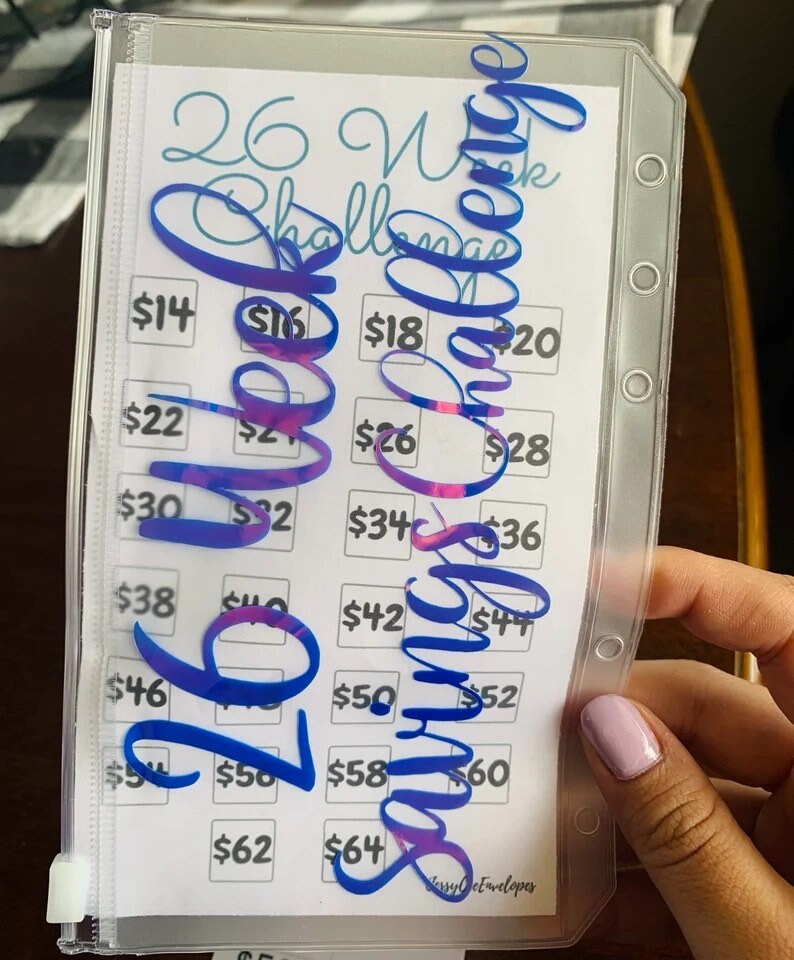 26 Week
Challenge
$14 $16 $18 $20
$22 $24 $26 $28
$30 $32 $34 $36
$38 $40 $42 $44
$46 $48 $50 $52
$54 $56 $58 $60
$62 $64
26 Week
Savings Challenge